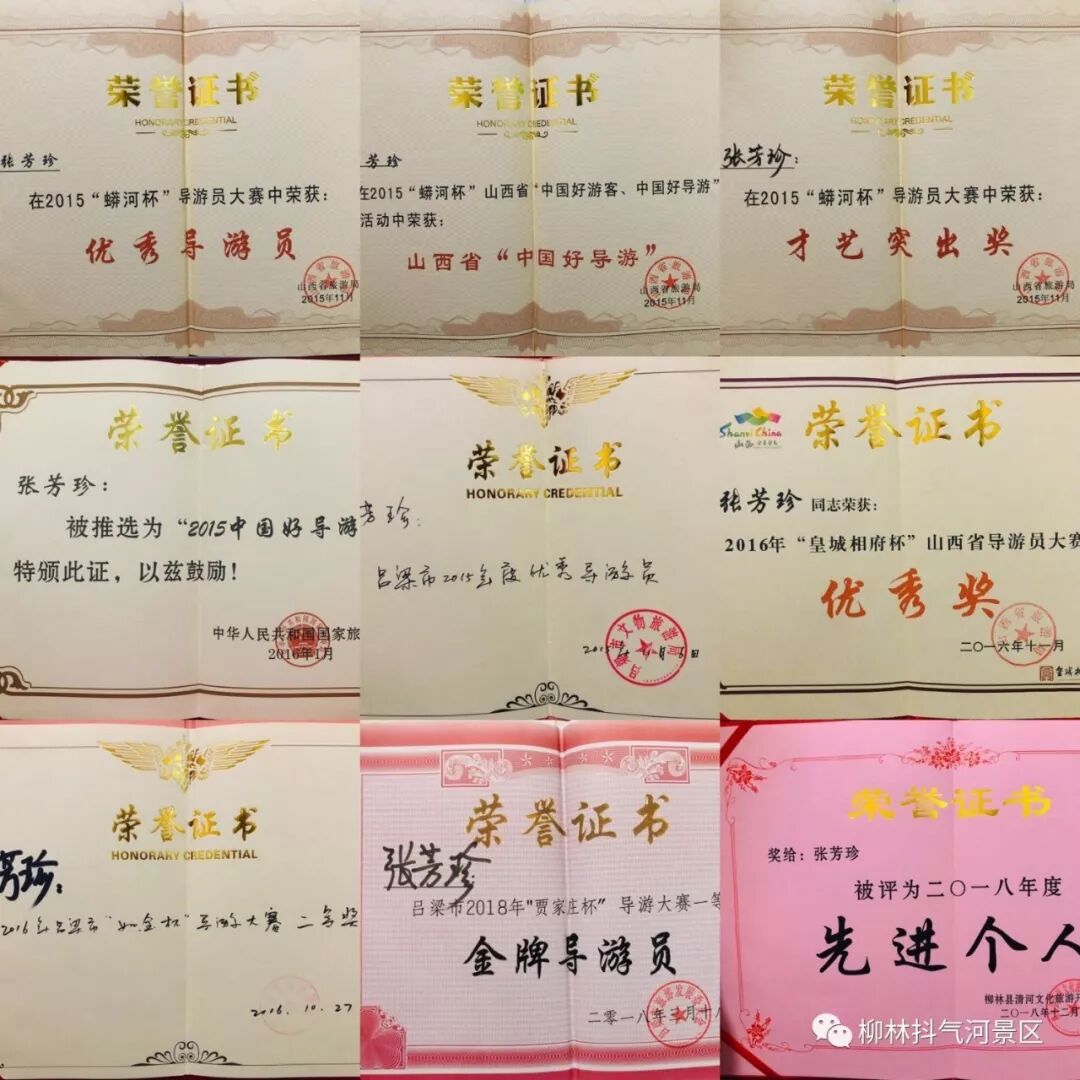 荣誉证书
HONORARY CREDENTIAL
张芳珍
在2015“蟒河杯”导游员大赛中荣获:
优秀导游员
山西省旅游局
2015年11月
荣誉证书
HONORARY CREDENTIAL
芳珍
在2015“蟒河杯”山西省“中国好游客、中国好导游”
活动中荣获:
山西省“中国好导游”
山西省旅游局
2015年11月
荣誉证书
HONORARY CREDENTIAL
张芳珍:
在2015“蟒河杯”导游员大赛中荣获:
才艺突出奖
山西省旅游局
2015年11月
荣誉证书
张芳珍:
被推选为“2015中国好导游
特颁此证,以兹鼓励!
中华人民共和国国家旅
2016年1月
荣誉证书
HONORARY CREDENTIAL
芳珍:
吕梁市2015年度优秀导游员
吕梁市文物旅游局
荣誉证书
Shanxi China
张芳珍 同志荣获:
2016年“皇城相府杯”山西省导游员大赛
优秀奖
二〇一六年十一月
荣誉证书
HONORARY CREDENTIAL
芳珍:
2016年吕梁市“如金杯”导游大赛 二等奖
2016.10.27
荣誉证书
张芳珍
吕梁市2018年"贾家庄杯" 导游大赛一等
金牌导游员
荣誉证书
奖给:张芳珍
被评为二〇一八年度
先进个人
柳林县清河文化旅游开
二〇一八年十二月
柳林抖气河景区